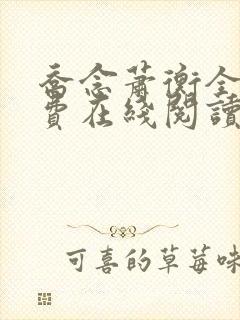 喬念蕭衡全
費在綫閱讀
可喜的草莓味